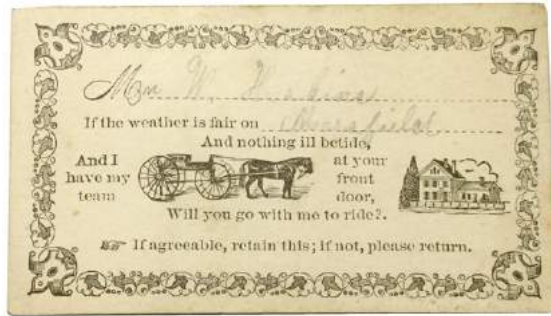 M W. H
If the weather is fair on
And nothing ill betide,
And I have my team at your front door,
Will you go with me to ride?.
☞ If agreeable, retain this; if not, please return.